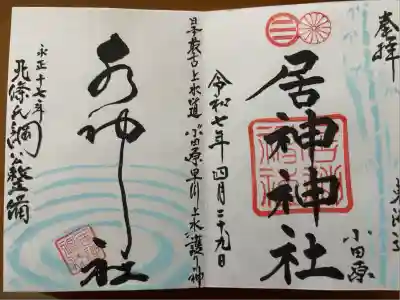 奉拝
小田原
居神神社
令和七年四月二十九日
日本最古上水道 小田原早川上水護り神
水神社
永正十七年
北條氏綱公整備